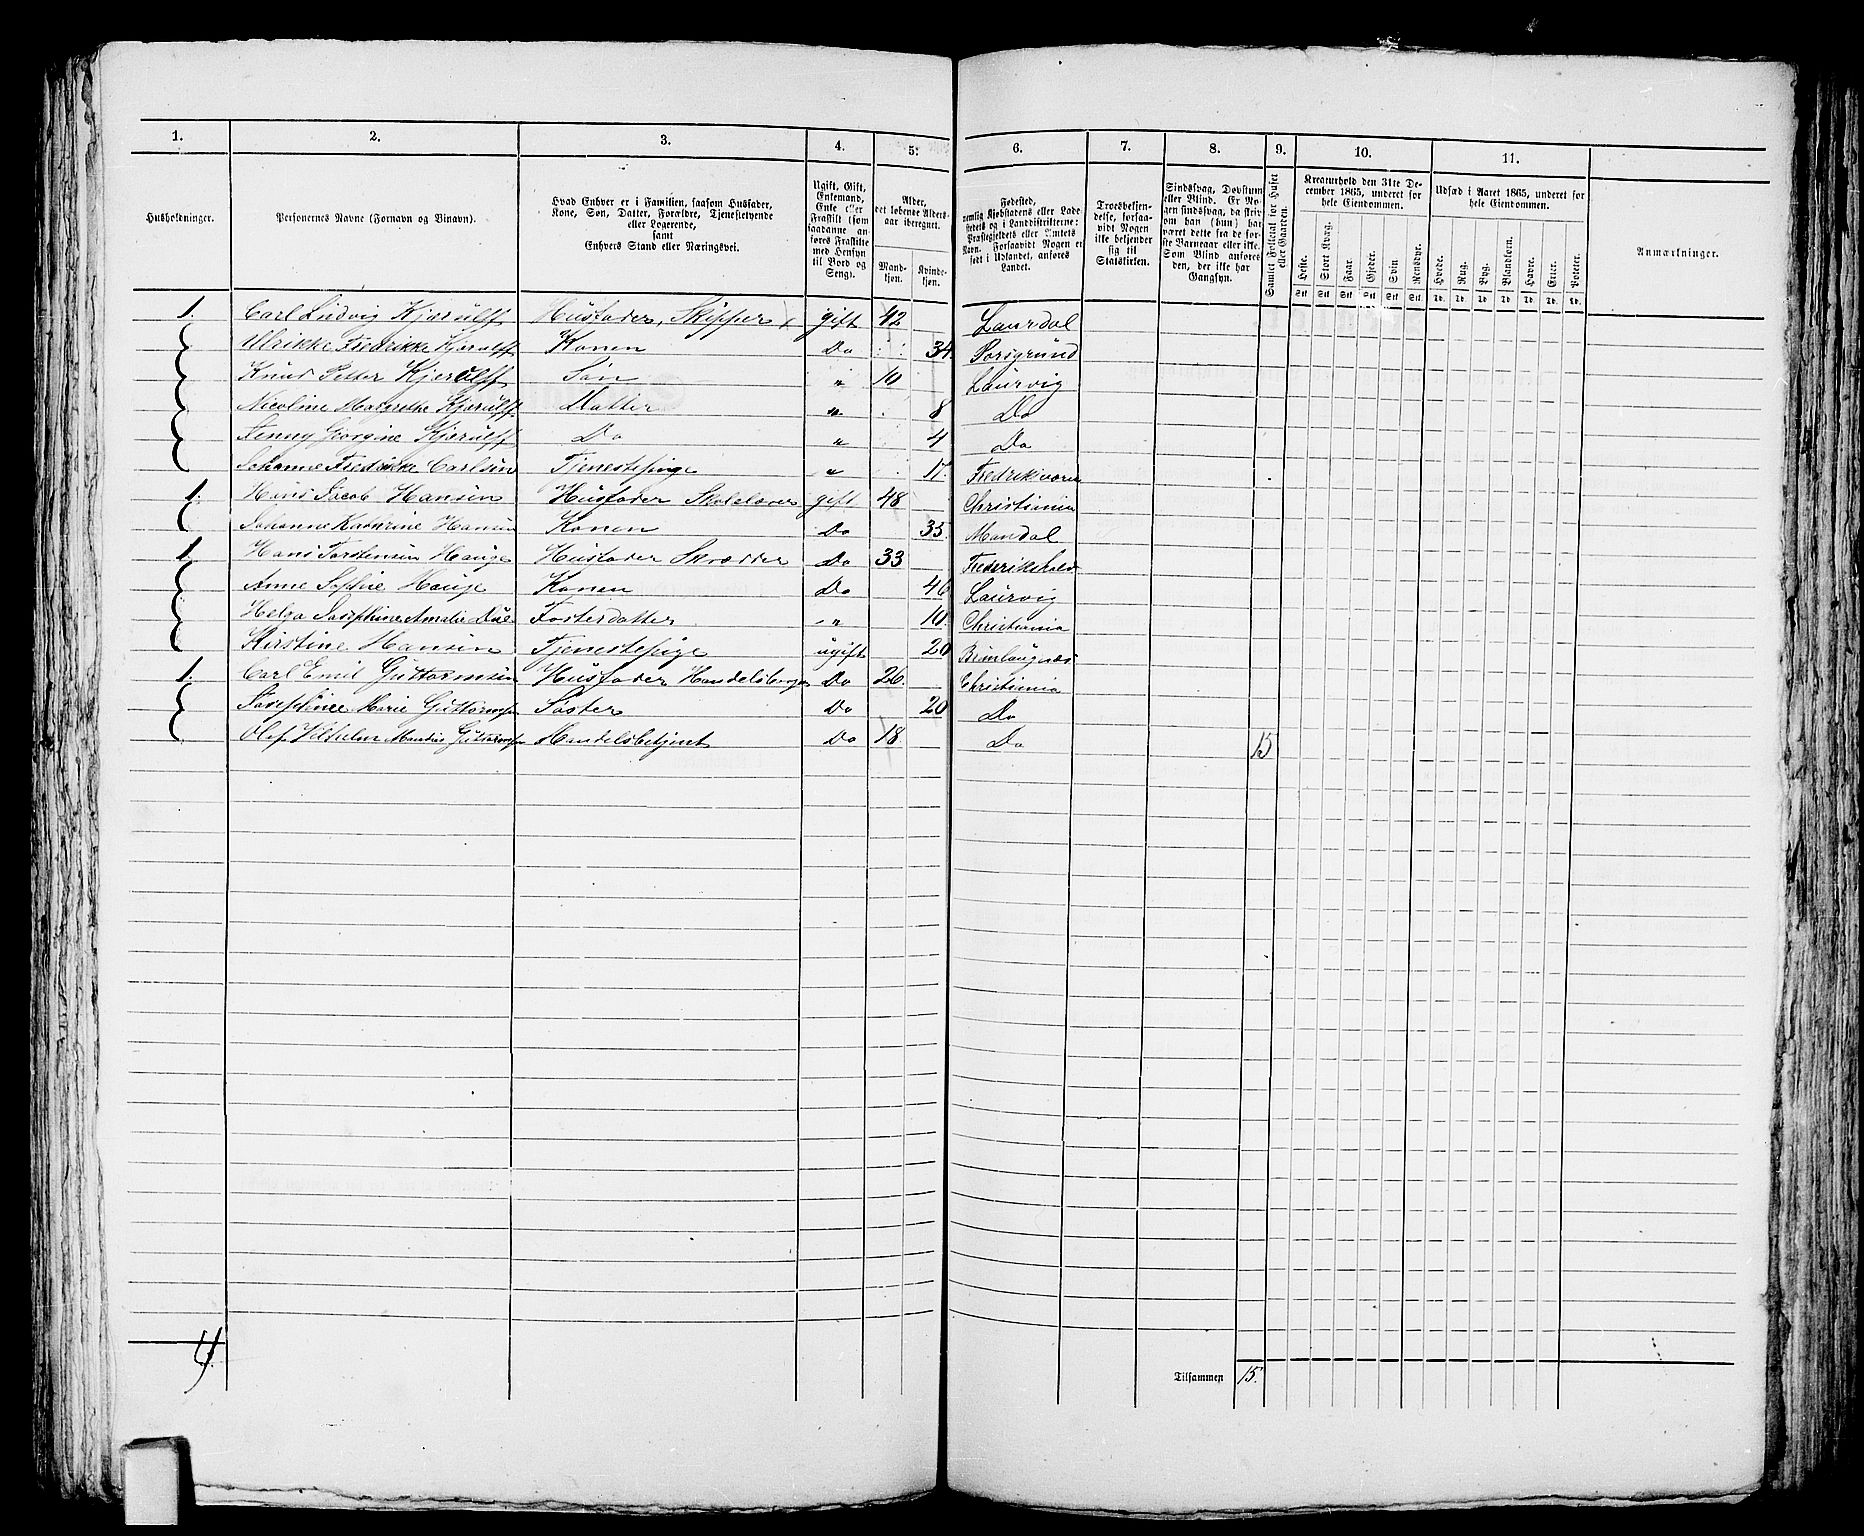 1. 2. 3. 4. 5. 6. 7. 8. 9. 10. 11.
Husholdninger.
Personernes Navne (Fornavn og Binavn).
Hvad Enhver er i Familien, saasom Husfader,
Kone, Søn, Datter, Forældre, Tjenestetyende
eller Logerende,
samt
Enhvers Stand eller Næringsvei.
Ugift, Gift,
Enkemand,
Enke eller
Fraskilt (som
saadanne an-
føres Fraskilte
med Hensyn
til Bord og
Seng).
Alder,
det løbende Alders-
aar iberegnet.
Mand-
kjøn.
Kvinde-
kjøn.
Fødested,
nemlig Kjøbstadens eller Lade-
stedets og i Landdistrikterne:
Præstegjeldets eller Amtets
Navn. Forsaavidt Nogen er
født i Udlandet, anføres
Landet.
Troesbekjen-
delse, forsaa-
vidt Nogen
ikke bekjender
sig til
Statskirken.
Sindssvag, Døvstum
eller Blind. Er No-
gen sindssvag, da skriv
om han (hun) har
været dette fra de før-
ste Barneaar eller ikke.
Som Blind anføres
den, der ikke har
Gangsyn.
Samlet Folketal for Huset
eller Gaarden.
Kreaturhold den 31te De-
cember 1865, underet for
hele Eiendommen.
Heste. Stort Kvæg. Faar. Gjeder. Svin. Rensdyr.
Udsæd i Aaret 1865, underet for
hele Eiendommen.
Hvede. Rug. Byg. Blandkorn. Havre. Erter. Poteter.
Anmærkninger.
Stk. Stk. Stk. Stk. Stk. Stk. Td. Td. Td. Td. Td. Td. Td.
1. Carl Ludvig Kjærulff Husfader, Skipper gift 42 Laurdal
Ulrikke Fredrikke Kjærulff Konen Do 34. Porsgrund
Knud Petter Kjærulff Søn " 10 Laurvig
Nicoline Margrethe Kjærulff Datter " 8 Do
Jenny Georgine Kjærulff Do " 4 Do
Johanne Fredrikke Carlsen Tjenestepige " 17. Fredriksværn
1. Hans Jacob Hansen Husfader Skolelærer gift 48 Christiania
Johanne Kathrine Hansen Konen Do 35. Mandal
1. Hans Torstensen Hauge Husfader Skrædder Do 33 Frederikshald
Anne Sophie Hauge Konen Do 46 Laurvig
Helga Josephine Amalie Due Fosterdatter " 10. Christiania
Kirstine Hansen Tjenestepige ugift 20 Brunlaugnæs
1. Carl Emil Guttormsen Husfader Handelsborger Do 26. Christiania
Josephine Marie Guttormsen Søster Do 20 Do
Olaf Vilhelm Guttormsen Handelsbetjent Do 18 Do 15
4.
Tilsammen 15.